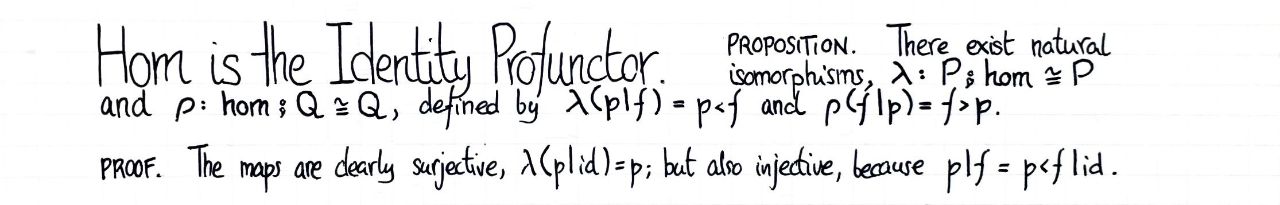 Hom is the Identity Profunctor. PROPOSITION. There exist natural
isomorphisms, λ: P⨟hom ≅ P
and ρ: hom⨟Q ≅ Q, defined by λ(p|f) = p<f and ρ(f|p) = f>p.
PROOF. The maps are clearly surjective, λ(p|id)=p; but also injective, because p|f = p<f|id.